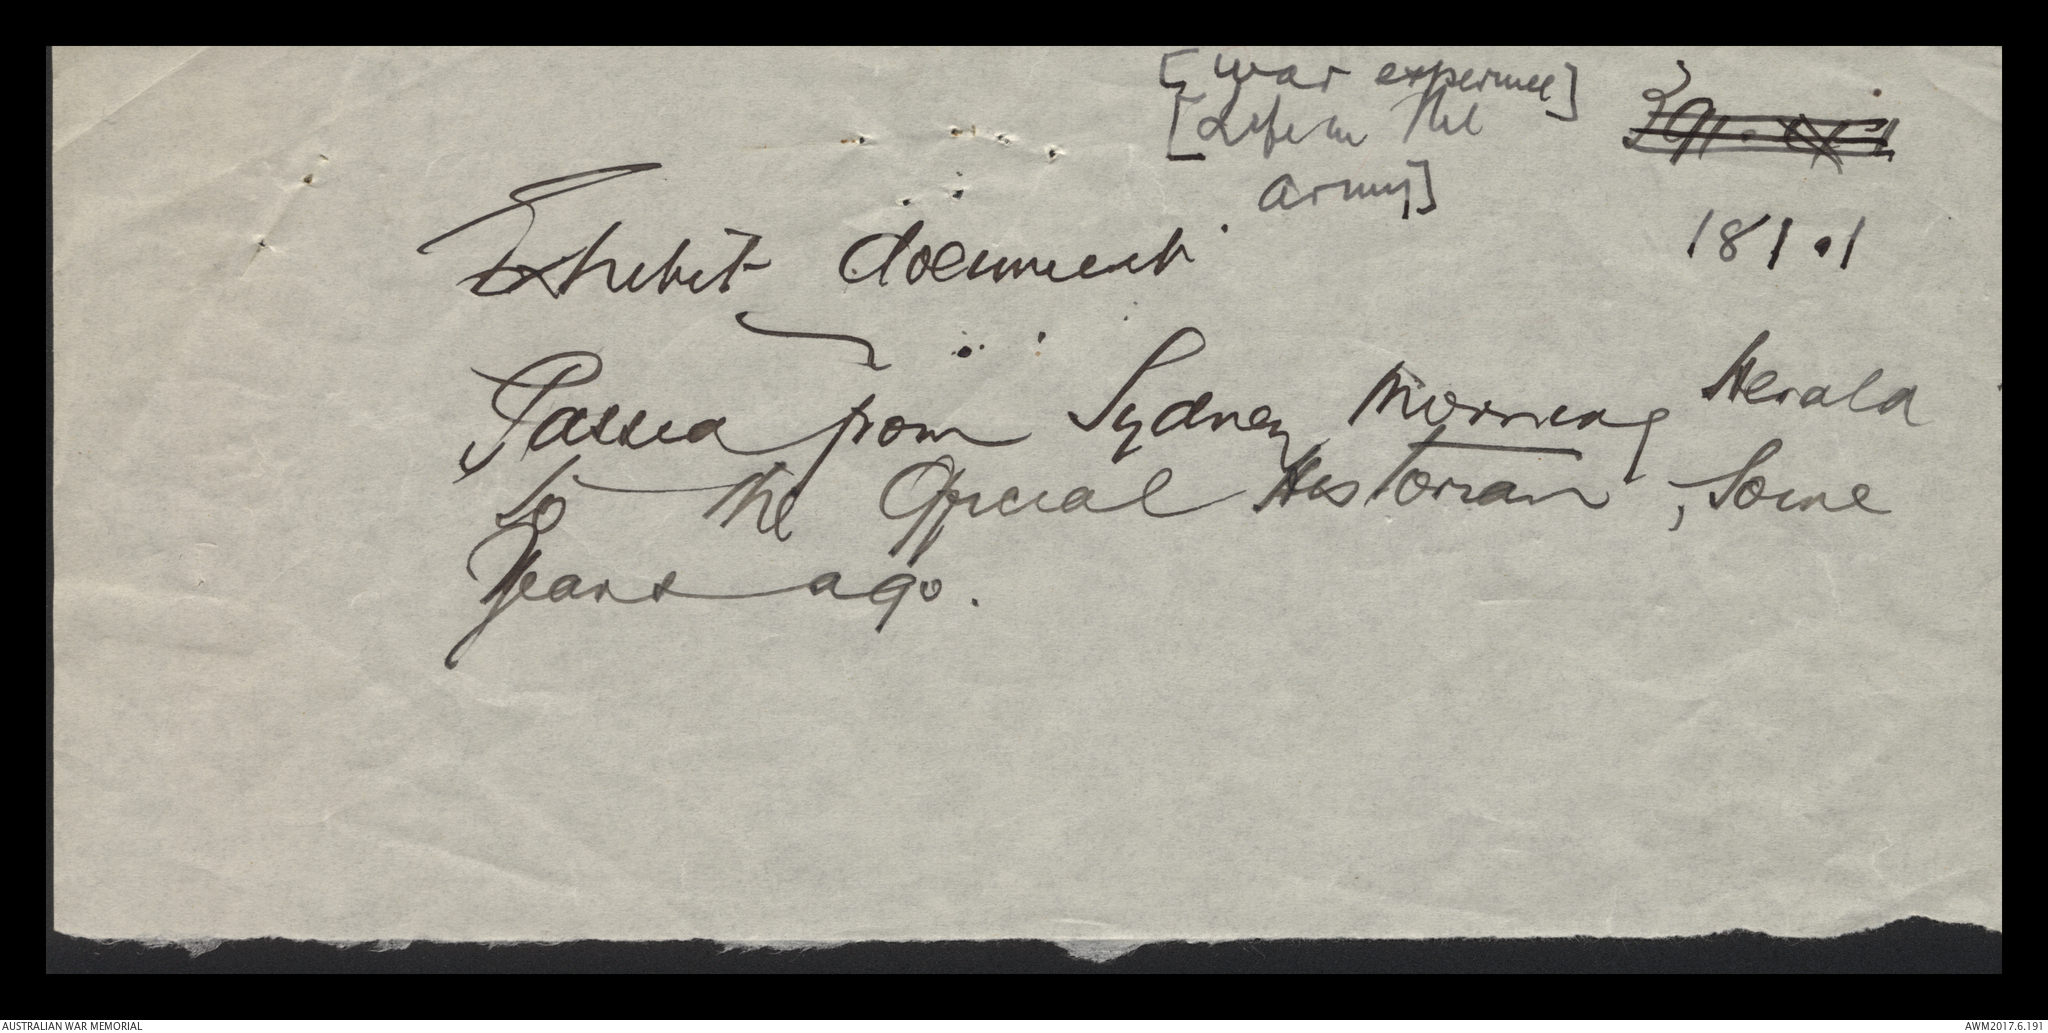 [War experience]
[Life in the
army]
181.1
Exhibit document
Passed from Sydney Morning Herald
to the Official Historian, Some
Years ago.
AUSTRALIAN WAR MEMORIAL
AWM2017.6.191